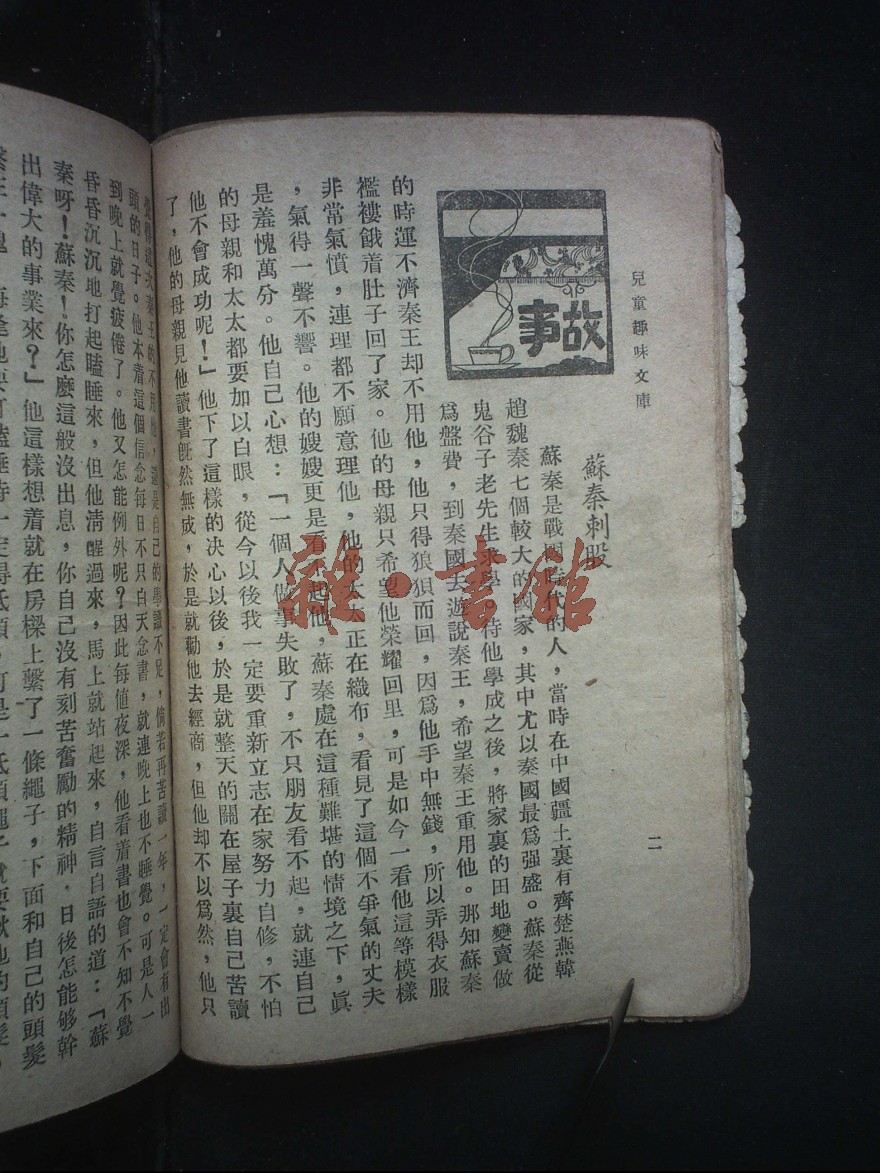 兒童趣味文庫
二
故事
蘇秦刺股
蘇秦是戰國時代的人，當時在中國疆土裏有齊楚燕韓
趙魏秦七個較大的國家，其中尤以秦國最爲强盛。蘇秦從
鬼谷子老先生求學，待他學成之後，將家裏的田地變賣做
爲盤費，到秦國去遊說秦王，希望秦王重用他。那知蘇秦
的時運不濟秦王却不用他，他只得狼狽而回，因爲他手中無錢，所以弄得衣服
襤褸餓着肚子回了家。他的母親只希望他榮耀回里，可是如今一看他這等模樣
非常氣憤，連理都不願意理他，他的太太正在織布，看見了這個不爭氣的丈夫
，氣得一聲不響。他的嫂嫂更是看不起他，蘇秦處在這種難堪的情境之下，眞
是羞愧萬分。他自己心想：「一個人做事失敗了，不只朋友看不起，就連自己
的母親和太太都要加以白眼，從今以後我一定要重新立志在家努力自修，不怕
他不會成功呢！」他下了這樣的決心以後，於是就整天的關在屋子裏自己苦讀
了，他的母親見他讀書旣然無成，於是就勸他去經商，但他却不以爲然，他只
覺得這次秦王的不用他，這是自己的學識不足，倘若再苦讀一年，一定會有出
頭的日子。他本着這個信念每日不只白天念書，就連晚上也不睡覺。可是人一
到晚上就覺疲倦了。他又怎能例外呢？因此每値夜深，他看着書也會不知不覺
昏昏沉沉地打起瞌睡來，但他淸醒過來，馬上就站起來，自言自語的道：「蘇
秦呀！蘇秦！你怎麼這般沒出息，你自己沒有刻苦奮勵的精神，日後怎能够幹
出偉大的事業來？」他這樣想着就在房樑上繫了一條繩子，下面和自己的頭髮
雜·書館